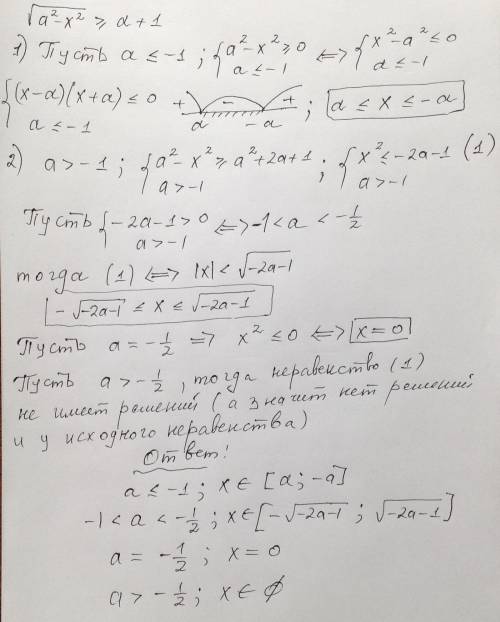 √(a²-x²) ⩾ a+1
1) Пусть a ≤ -1 ; { a²-x² ⩾ 0 ; a ≤ -1 ⟺ { x²-a² ≤ 0 ; a ≤ -1
{ (x-a)(x+a) ≤ 0 ; a ≤ -1 + - + a -a ; a ≤ x ≤ -a
2) a > -1 ; { a²-x² ⩾ a²+2a+1 ; a > -1 ; { x² ≤ -2a-1 (1) ; a > -1
Пусть { -2a-1 > 0 ; a > -1 ⟺ -1 < a < -1/2
тогда (1) ⟺ |x| < √(-2a-1)
-√(-2a-1) ≤ x ≤ √(-2a-1)
Пусть a = -1/2 ⟹ x² ≤ 0 ⟺ x = 0
Пусть a > -1/2, тогда неравенство (1)
не имеет решений (а значит нет решений
и у исходного неравенства)
Ответ!
a ≤ -1 ; x ∈ [a ; -a]
-1 < a < -1/2 ; x ∈ [-√(-2a-1) ; √(-2a-1)]
a = -1/2 ; x = 0
a > -1/2 ; x ∈ ∅